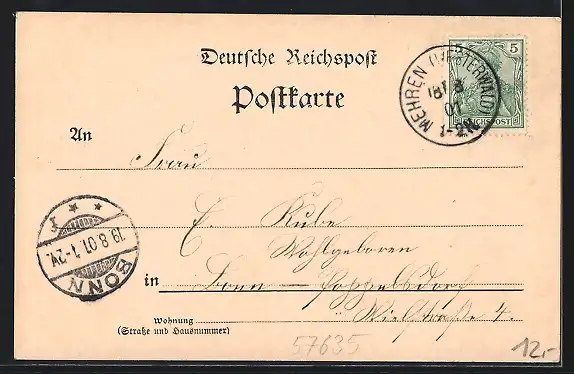 Deutsche Reichspost
Postkarte
5
REICHSPOST
MEHREN (WESTERWALD)
18 8
01
1-2N
An
Frau
E. Kube
Wohlgeboren
in Bonn — Poppelsdorf
4.
Wohnung
(Straße und Hausnummer)
BONN
19.8.01.1-2V.
* *
57635
12,-